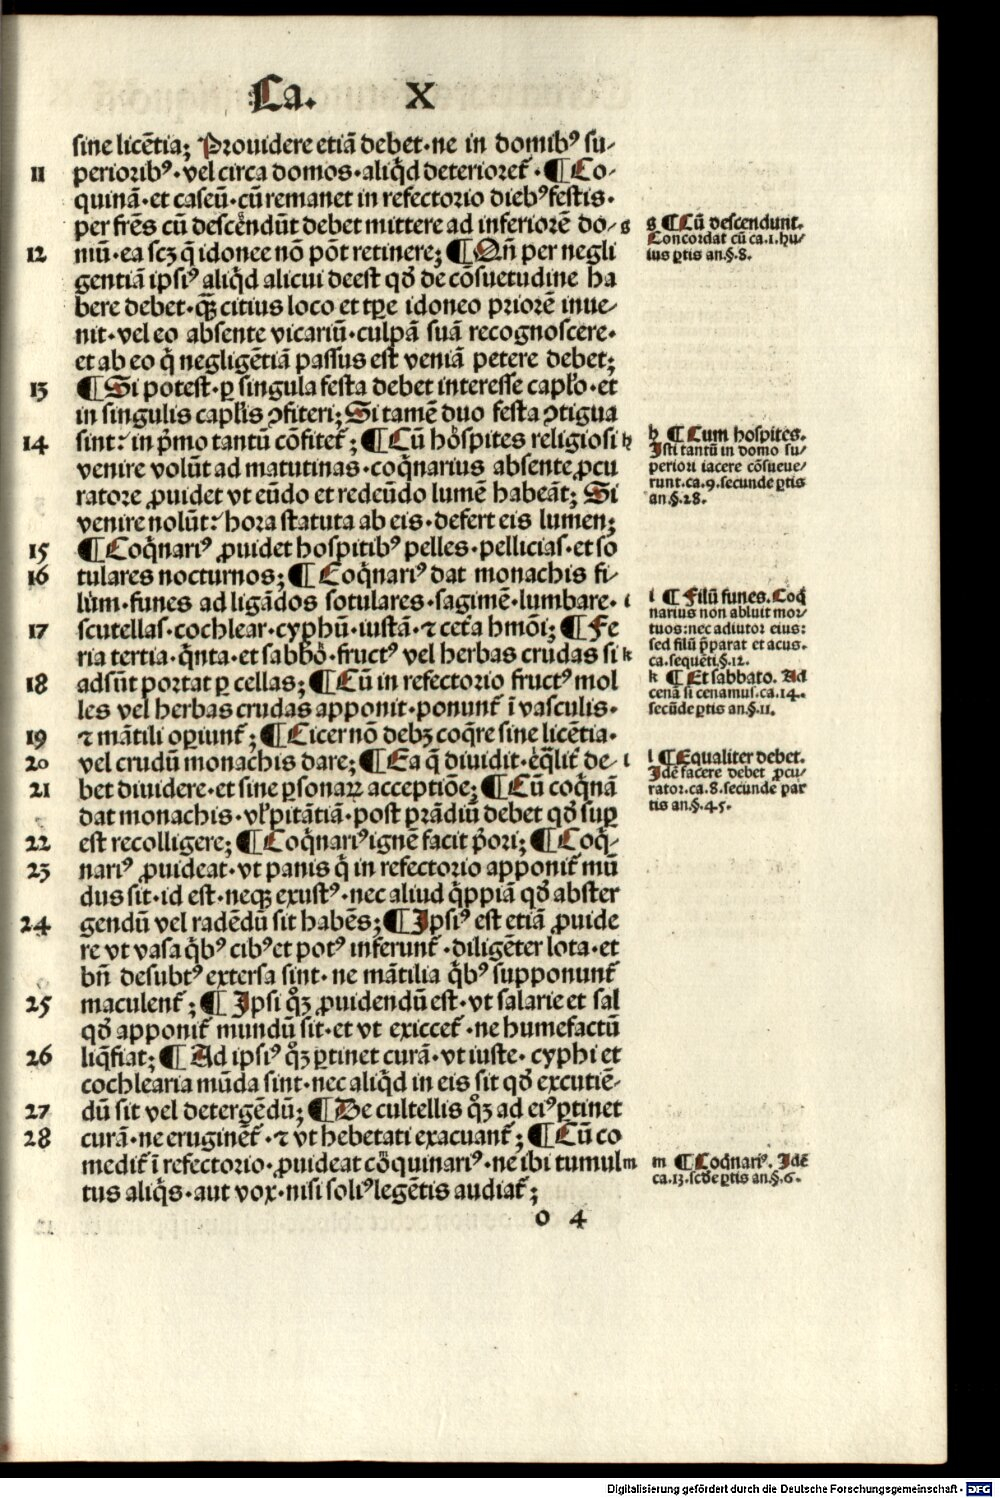 Ca. X
sine licẽtia; Prouidere etiã debet·ne in domibꝰ su/
11 perioribꝰ·vel circa domos·aliq̃d deterioret̃·¶Co/
quinã·et caseũ·cũ remanet in refectorio diebꝰ festis·
per frẽs cũ descẽndũt debet mittere ad inferiorẽ do/ g
12 mũ·ea scꝫ q̃ idonee nõ põt retinere;¶Qñ per negli
gentiã ipsiꝰ aliq̃d alicui deest qđ de cõsuetudine ha
bere debet·q̃ꝫ citius loco et tꝑe idoneo priorẽ inue/
nit·vel eo absente vicariũ·culpã suã recognoscere·
et ab eo q̃ negligẽtiã passus est veniã petere debet;
13 ¶Si potest·ꝑ singula festa debet interesse capło·et
in singulis capłis ꝯfiteri; Si tamẽ duo festa ꝯtigua
14 sint: in p̃mo tantũ cõfitet̃;¶Cũ hõspites religiosi h
venire volũt ad matutinas·coq̃narius absente ꝓcu
ratore ꝓuidet vt eũdo et redeũdo lumẽ habeãt; Si
venire nolũt: hora statuta ab eis·defert eis lumen;
15 ¶Coq̃nariꝰ ꝓuidet hospitibꝰ pelles·pellicias·et so
16 tulares nocturnos;¶Coq̃nariꝰ dat monachis fi/
lũm·funes ad ligãdos sotulares·sagimẽ·lumbare· i
17 scutellas·cochlear·cyphũ·iustã·⁊ ceťa hmõi;¶Fe
ria tertia·q̃nta·et sabbõ·fructꝰ vel herbas crudas si k
18 adsũt portat ꝑ cellas;¶Cũ in refectorio fructꝰ mol
les vel herbas crudas apponit·ponunt̃ ĩ vasculis·
19 ⁊ mãtili oꝑiunt̃;¶Cicer nõ debꝫ coq̃re sine licẽtia·
20 vel crudũ monachis dare;¶Ea q̃ diuidit·ẽq̃lit̃ de/ l
21 bet diuidere·et sine ꝑsonaꝝ acceptiõe;¶Cũ coq̃nã
dat monachis·vł pitãtiã·post prãdiũ debet qđ suꝑ
22 est recolligere;¶Coq̃nariꝰ ignẽ facit p̃ori;¶Coq̃/
23 nariꝰ ꝓuideat·vt panis q̃ in refectorio apponit̃ mũ
dus sit·id est·neqꝫ exustꝰ·nec aliud q̃ppiã qđ abster
24 gendũ vel radẽdũ sit habẽs;¶Ipsiꝰ est etiã ꝓuide
re vt vasa q̃bꝰ cibꝰ et potꝰ inferunt̃·diligẽter lota·et
bñ desubtꝰ extersa sint·ne mãtilia q̃bꝰ supponunt̃
25 maculent̃;¶Ipsi q̊ꝫ ꝓuidendũ est·vt salarie et sal
qđ apponit̃ mundũ sit·et vt exiccet̃·ne humefactũ
26 liq̃fiat;¶Ad ipsiꝰ q̊ꝫ ꝑtinet curã·vt iuste·cyphi et
cochlearia mũda sint·nec aliq̃d in eis sit qđ excutiẽ/
27 dũ sit vel detergẽdũ;¶De cultellis q̊ꝫ ad eiꝰ ꝑtinet
28 curã·ne eruginẽt̃·⁊ vt hebetati exacuant̃;¶Cũ co
medit̃ ĩ refectorio·ꝓuideat cõquinariꝰ·ne ibi tumul m
tus aliq̃s·aut vox·nisi soliꝰ legẽtis audiat̃;
o 4
g ¶Cũ descendunt.
Concordat cũ ca.1.hu/
ius ꝑtis an.§.8.
h ¶Cum hospites.
Isti tantũ in domo su/
periori iacere cõsueue/
runt.ca.9.secunde ꝑtis
an.§.28.
i ¶Filũ funes. Coq̃
narius non abluit mor/
tuos: nec adiutor eius:
sed filũ p̃parat et acus.
ca.sequẽti.§.12.
k ¶Et sabbato. Ad
cenã si cenamus.ca.14.
secũde ꝑtis an.§.11.
l ¶Equaliter debet.
Idẽ facere debet ꝓcu/
rator.ca.8.secunde par
tis an.§.45.
m ¶Coq̃nariꝰ. Idẽ
ca.13.scđe ꝑtis an.§.6.
Digitalisierung gefördert durch die Deutsche Forschungsgemeinschaft - DFG